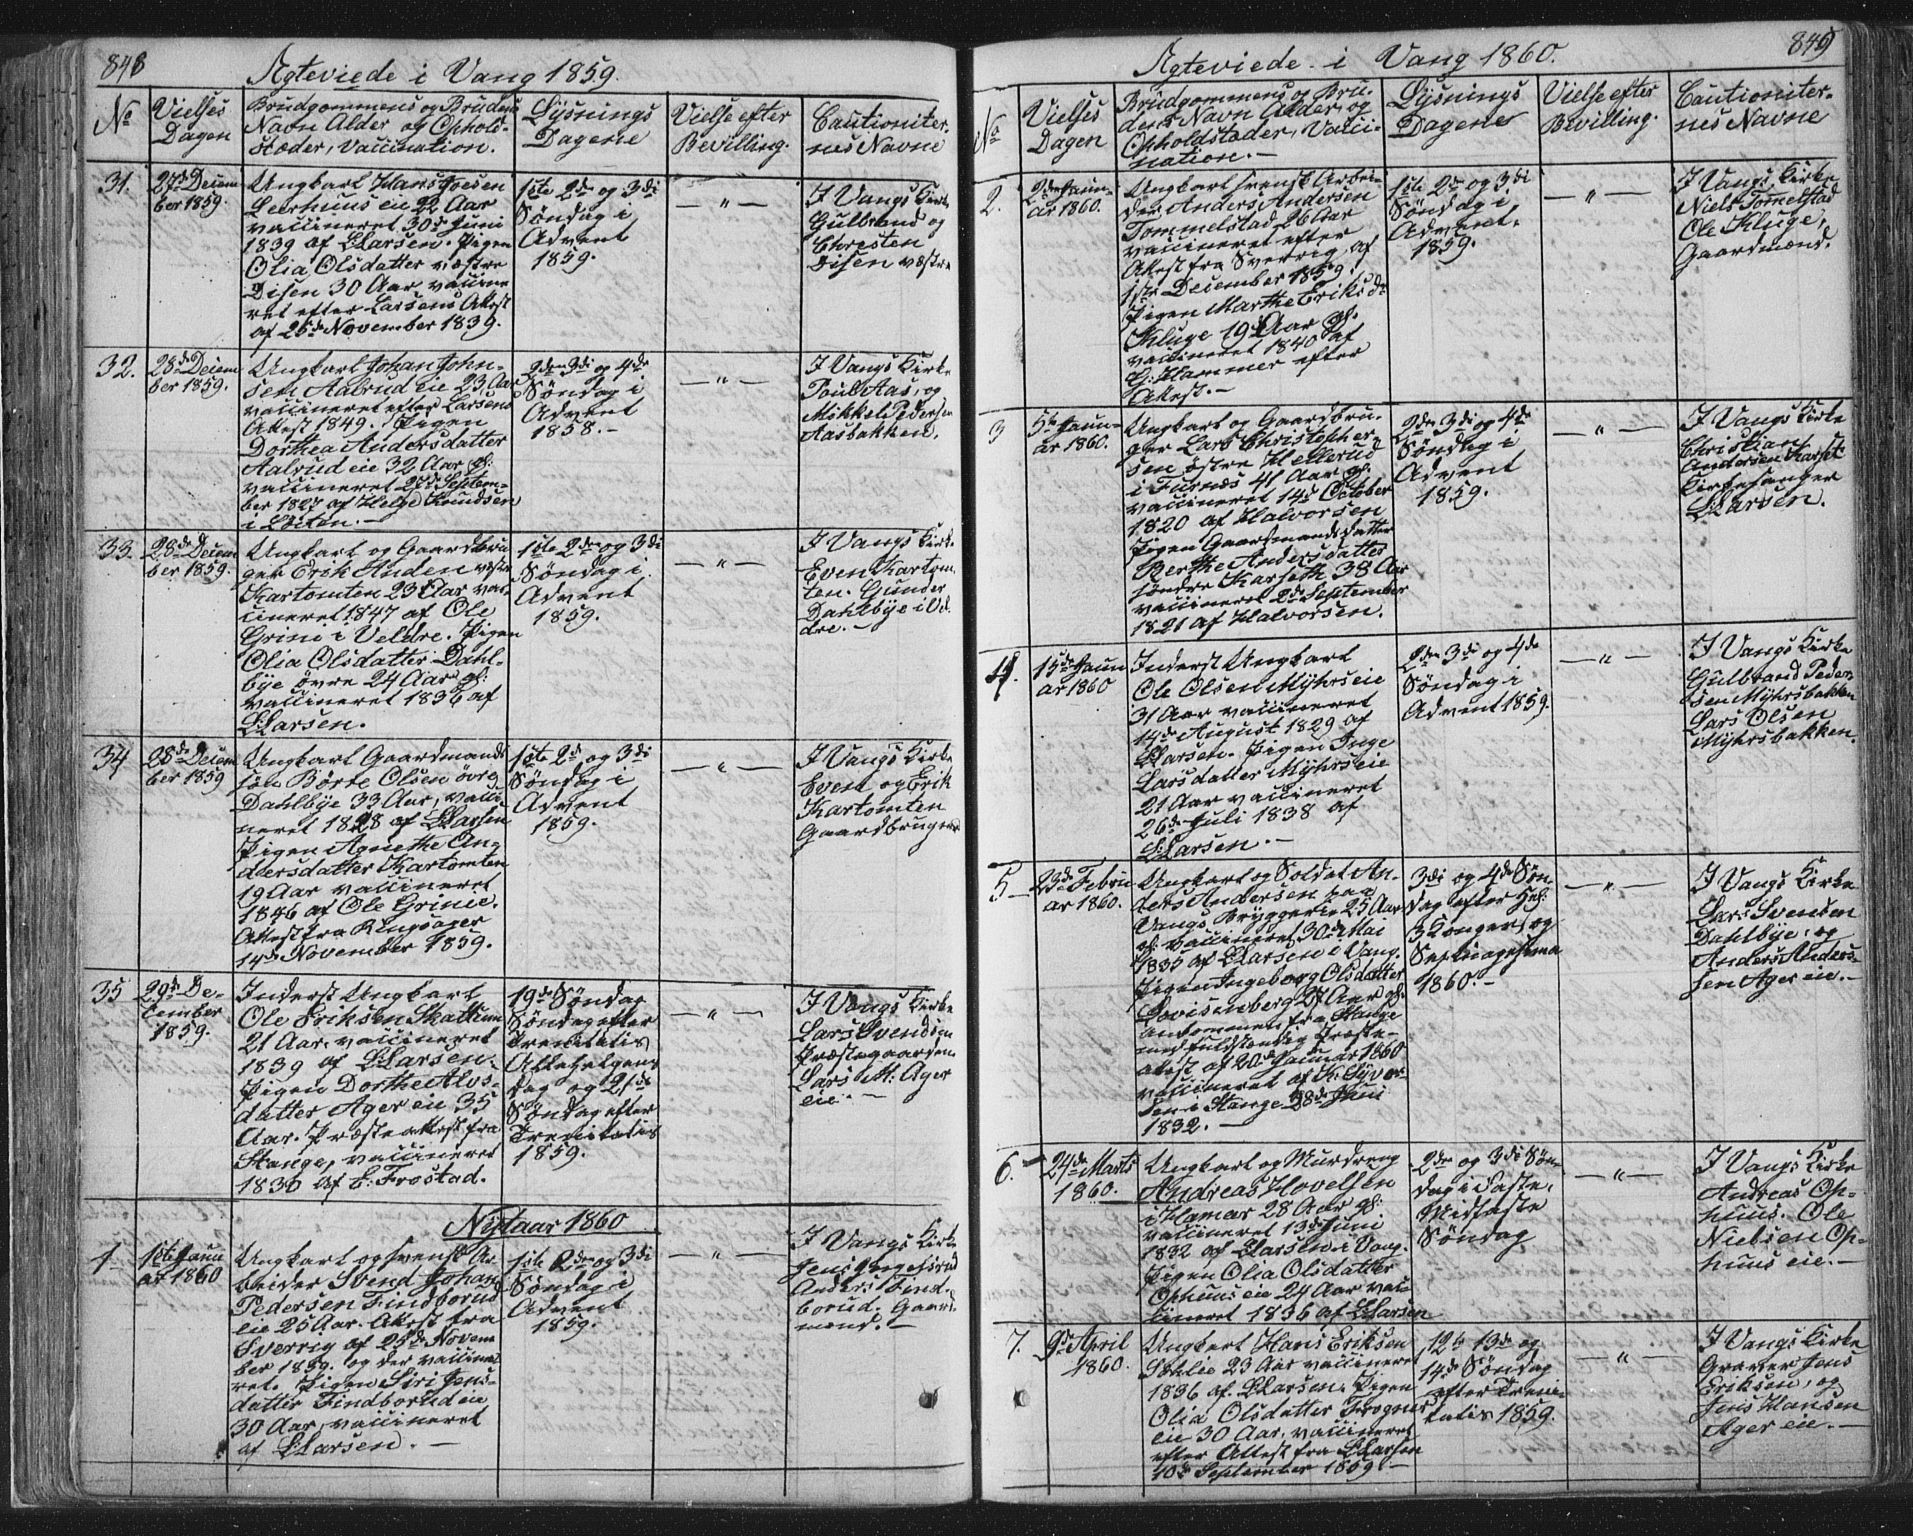 848
Ægteviede i Vang 1859.
No
Vielses
Dagen
Brudgommens og Brudens
Navn Alder og Ophold-
stæder, Vaccination.
Lysnings
Dagene
Vielse efter
Bevilling.
Cautioniter-
nes Navne
31.
27de Decem
ber 1859.
Ungkarl Hans Joesen
Leerhuus eie 22 Aar
vaccineret 30te Juni
1839 af LLarsen. Pigen
Olia Olsdatter vestre
Disen 30 Aar vaccine
ret efter Larsens Attest
af 25de November 1839.
1ste 2de og 3di
Søndag i
Advent
1859.
— " —
I Vangs Kirke
Gulbrand og
Christen
Disen vestre
32.
28de Decem
ber 1859.
Ungkarl Johan John-
sen Aalrud eie 23 Aar
vaccineret efter Larsens
Attest 1849. Pigen
Dorthea Andersdatter
Aalrud eie 32 Aar gl:
vaccineret 27de Septem-
ber 1827 af Helge Knudsen
i Løiten. —
2den 3di og 4de
Søndag i
Advent
1858. —
— " —
I Vangs Kirke
Poul Aas, og
Mikkel Pedersen
Aasbakken.
33.
28de Decem
ber 1859.
Ungkarl og Gaardbru
ger Erik Anden vestre
Kartomten 23 Aar vac-
cineret 1847 af Ole
Grini i Veldre. Pigen
Olia Olsdatter Dahl-
bye øvre 24 Aar gl:
vaccineret 1836 af
LLarsen.
1ste 2den og 3di
Søndag i
Advent
1859.
— " —
I Vangs Kirke
Even Kartom
ten. Gunder
Dahlbye i Vel
dre. —
34
28de Decem
ber 1859
Ungkarl Gaardmands
søn Børte Olsen øvre
Dahlbye 33 Aar, vacci-
neret 1828 af LLarsen
Pigen Agnethe An-
dersdatter Kartomten
19 Aar vaccineret
1846 af Ole Grinie.
Attest fra Ringsager
14de November 1859.
1ste 2de og 3di
Søndag i
Advent
1859.
— " —
I Vangs Kirke
Even og Erik
Kartomten
Gaardbrugere
35
29de De-
cember
1859.
Inderst Ungkarl
Ole Eriksen Skattum
21 Aar, vaccineret
1839 af LLarsen.
Pigen Dorthe Alvs-
datter Ager eie 35
Aar. Præsteattest fra
Stange, vaccineret
1830 af E. Frostad.
19de Søndag
Søndag efter
Trenitatis
Allehelgens
Dag og 21de
Søndag efter
Trenitatis
1859.
— " —
I Vangs Kirke
Lars Svendsen
Præstegaarden
Lars M: Ager
eie. —
Nytaar 1860
1
1ste Janu
ar 1860
Ungkarl og svensk Ar
beider Svend Johan
Pedersen Findborud
eie 25 Aar. Attest fra
Sverrig af 25de Novem
ber 1859. og der vaccine
ret. Pigen Siri Jens-
datter Findborud eie
30 Aar, vaccineret
af LLarsen. —
1ste 2den og 3di
Søndag i
Advent
1859.
— " —
I Vangs Kirke
Jens Ingelsrud
Anders Find-
borud. Gaard
mænd. —
849
Ægteviede i Vang 1860.
No
Vielses
Dagen
Brudgommens og Bru-
dens Navn Alder og
Opholdstæder, Vacci-
nation. —
Lysnings
Dagene
Vielse efter
Bevilling.
Cautioniter-
nes Navne
2.
2den Janu-
ar 1860.
Ungkarl svensk Arbei-
der Anders Andersen
Tommelstad 26 Aar
vaccineret efter
Attest fra Sverrig af
1ste December 1859.
Pigen Marthe Eriksdr
Kluge 19 Aar gl:
vaccineret 1840 af
G. Hammer efter
Attest. —
1ste 2de og 3di
Søndag i
Advent.
1859.
— " —
I Vangs Kirke
Niels Tomelstad
Ole Kluge,
Gaardmænd.
3
5te Janu-
ar 1860.
Ungkarl og Gaardbru-
ger Lars Christopher-
sen østre Hellerud
i Furnæs 41 Aar gl:
vaccineret 14de October
1820 af Halvorsen
Pigen Gaardmandsdatter
Berthe Andersdatter
søndre Karseth 38 Aar
vaccineret 2de September
1821 af Halvorsen.
2de 3di og 4de
Søndag i
Advent
1859.
— " —
I Vangs Kirke
Christian
Andersen Karset
Kirkesanger
LLarsen.
4.
15de Janu
ar 1860
Inderst Ungkarl
Ole Olsen Myhrseie
31 Aar vaccineret
14de August 1829 af
LLarsen. Pigen Inge
Larsdatter Myhrseie
21 Aar vaccineret
26de Juli 1838 af
LLarsen. —
2de 3di og 4de
Søndag i
Advent 1859.
— " —
I Vangs Kirke
Gulbrand Peder
sen Myhrsbakken
Lars Olsen
Myhrsbakken.
5
23de Febru
ar 1860.
Ungkarl og Soldat An-
ders Andersen paa
Vangs Bryggerie 25 Aar
gl: vaccineret 30de Mai
1835 af LLarsen i Vang.
Pigen Ingeborg Olsdatter
Lovisenberg 27 Aar gl:
ankommen fra Stange
med fuldstændig Præste-
attest af 20de Januar 1860
vaccineret af K. Syver-
sen i Stange 28de Juni
1832. —
3di og 4de Søn-
dag efter Hel.
3 Konger, og
Septuagesima
1860. —
— " —
I Vangs Kirke
Lars Svensen
Dahlbye, og
Anders Anders-
sen Ager eie. —
6.
24de Marts
1860.
Ungkarl og Murdreng
Andreas Hovelsen
i Hamar 28 Aar gl:
vaccineret 13de Juni
1832 af LLarsen i Vang.
Pigen Olia Olsdatter
Ophuus eie 24 Aar vac-
cineret 1836 af LLarsen
2de og 3di Søn-
dag i Faste,
Midfaste
Søndag
— " —
I Vangs Kirke
Andreas Op-
huus. Ole
Nielsen Op-
huus eie. —
7.
9de April
1860.
Ungkarl Hans Eriksen
Sohlie 23 Aar vaccineret
1836 af LLarsen. Pigen
Olia Olsdatter Frogner
eie 30 Aar, vaccineret
efter Attest fra LLarsen
10de September 1859. —
12te 13de og
14de Søndag
efter Treni-
tatis 1859.
— " —
I Vangs Kirke
Graver Jens
Eriksen, og
Jens Hansen
Ager eie. —